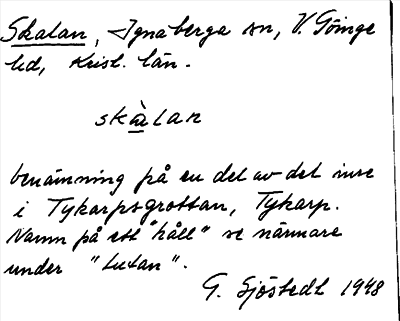 Skalan, Ignaberga sn, V. Göinge
hd, Krist. län.
skàlan
benämning på en del av det inre
i Tykarpsgrottan, Tykarp.
Namn på ett "håll" se närmare
under "Lutan".
G. Sjöstedt 1948